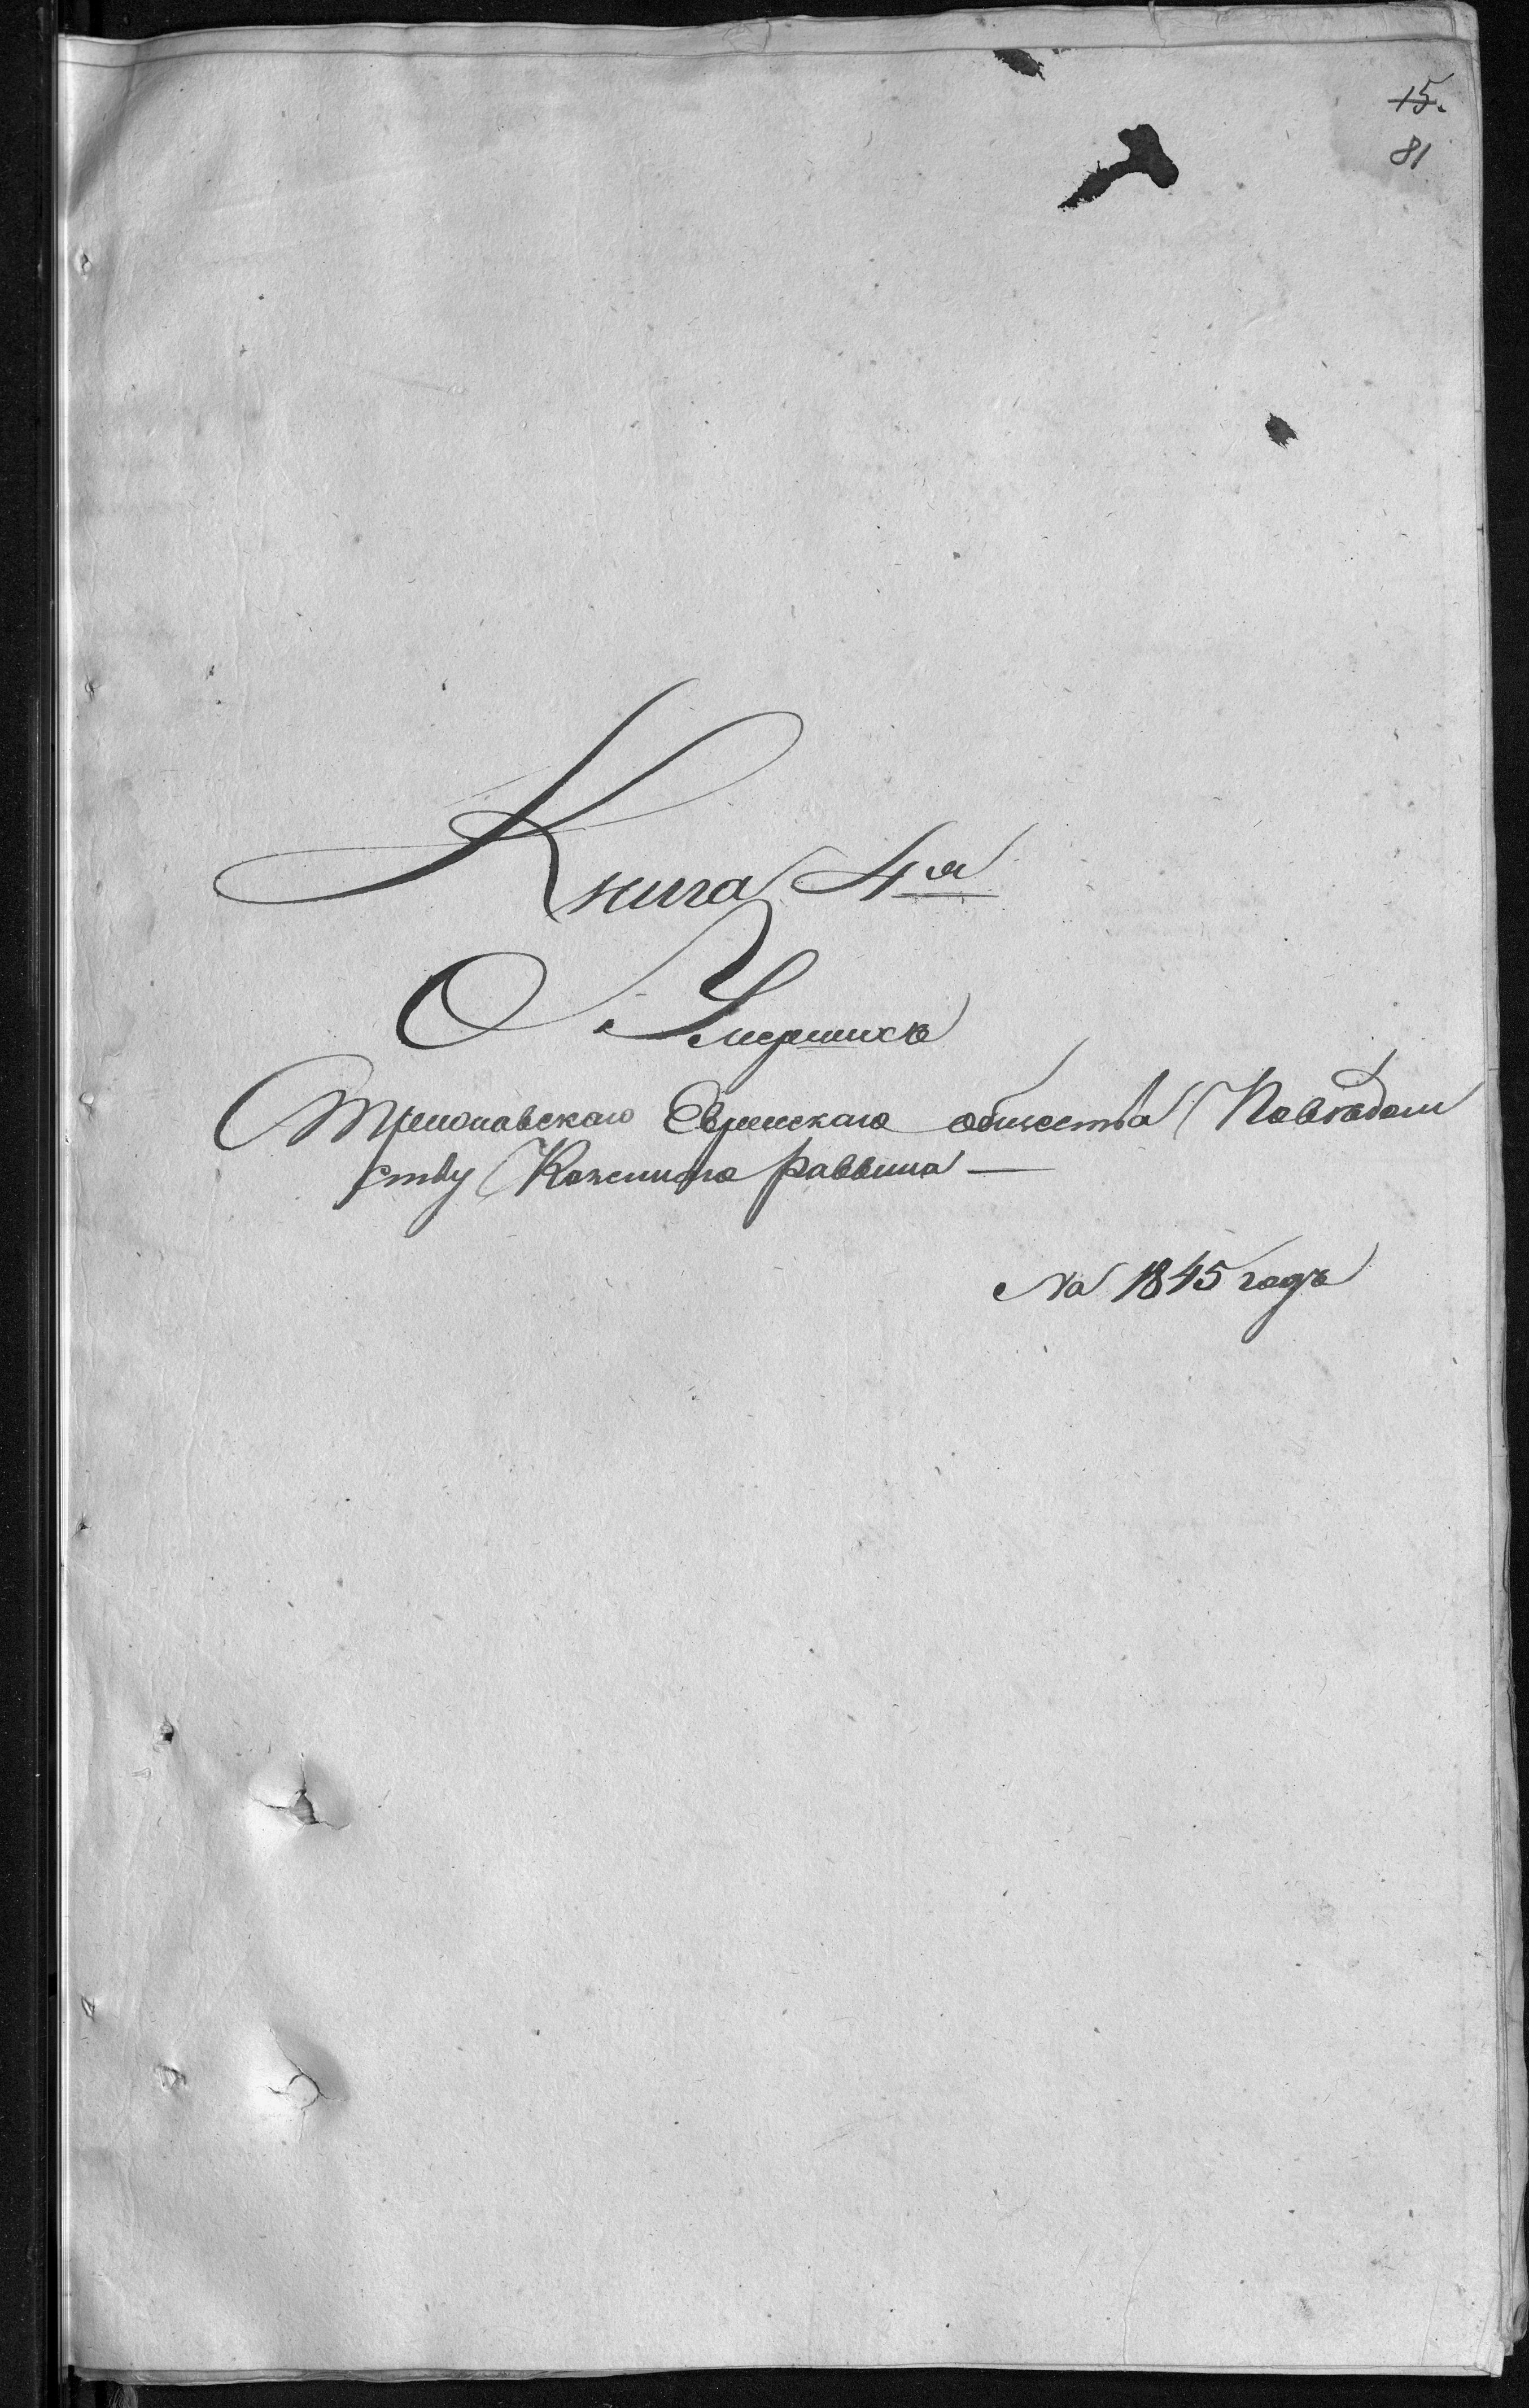 15.
81
Книга 4ая
О Умершихъ
Еврейскаго общества Повѣдом
ству Казенного раввина —
На 1845 годъ